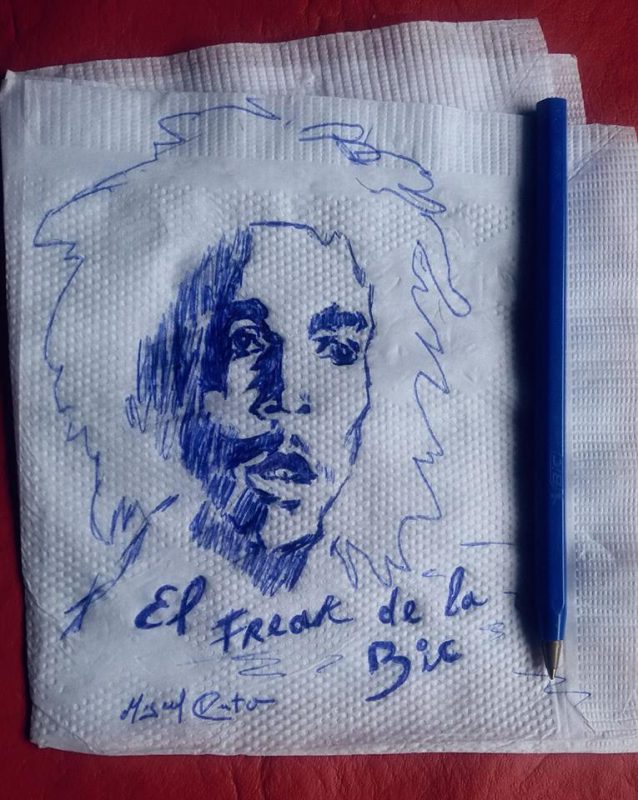 El Freak de la
Bic
Miguel